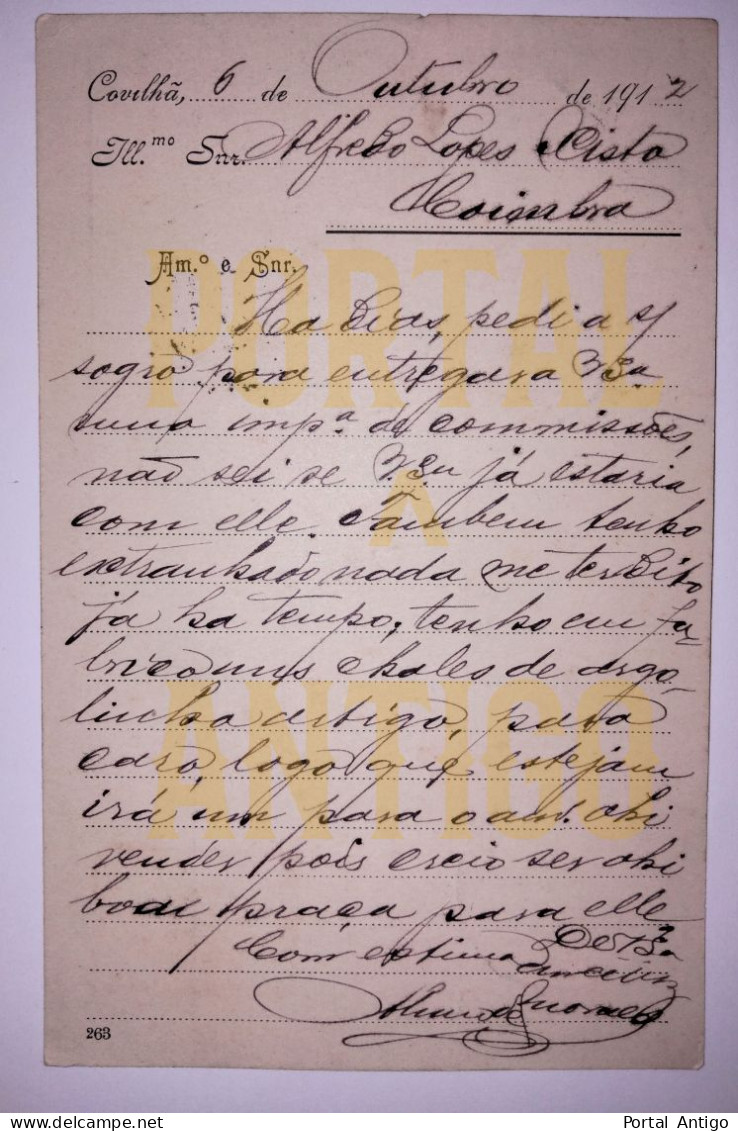 Covilhã, 6 de Outubro de 1912
Ill.mo Snr. Alfredo Lopes
Coimbra
Am.º e Snr.
Ha dias, pedi a
sogro para entregar a V. S.a
uma imp.a de commissões,
não sei se V. S.a já estaria
com elle. Tambem tenho
extranhado nada me ter dito
já ha tempo, tenho em fa-
brico uns chales de arga-
lucha artigo, para
caro, logo que estejam
irá um para o am.º ahi
vender pois creio ser ahi
boa praça para elle
Com estima De V. S.a
263
PORTAL
A
ANTIGO
Portal Antigo